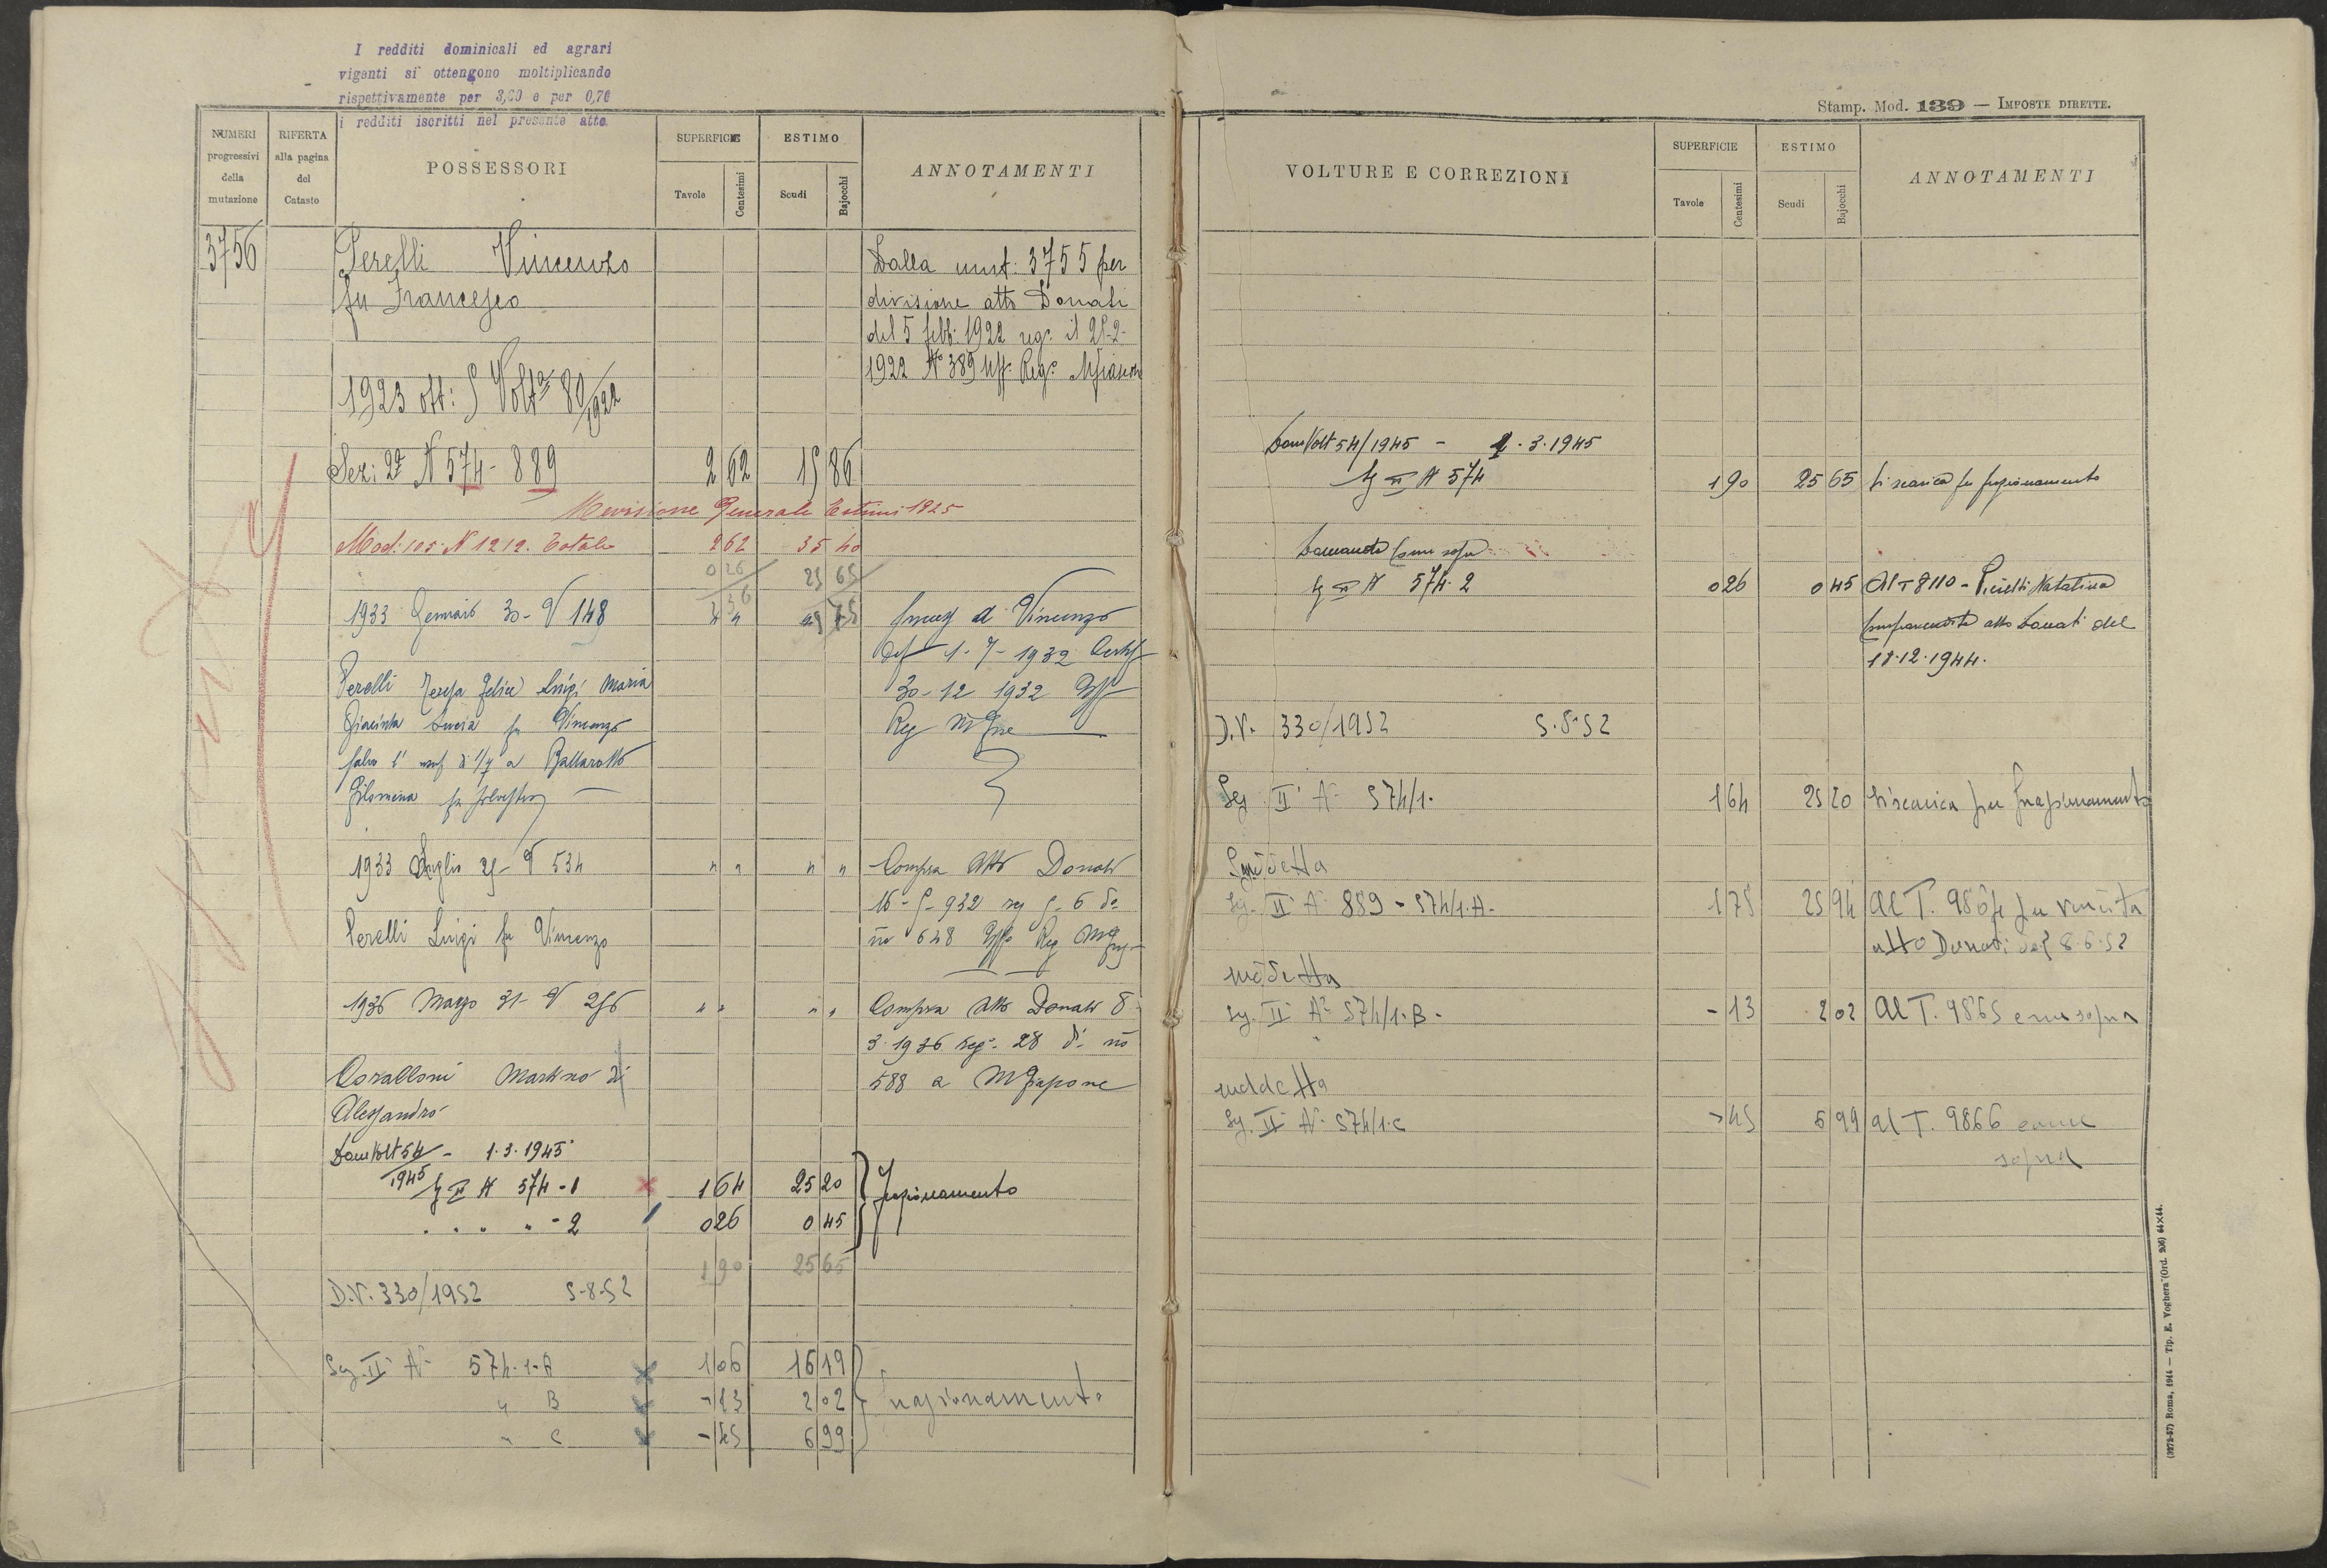 I redditi dominicali ed agrari
viganti si ottengono moltiplicando
rispettivamente per 3,60 e per 0,70
i redditi iscritti nel presente atto.
NUMERI progressivi della mutazione
RIFERTA alla pagina del Catasto
POSSESSORI
SUPERFICIE
Tavole Centesimi
ESTIMO
Scudi Bajocchi
ANNOTAMENTI
3756 Perelli Vincenzo Dalla mut: 3755 per
fu Francesco divisione atto Donati
del 5 febb: 1922 reg.
1922 N° 389 Uff. Reg.
1923 ott: Volt.a 80/1922
Sez: 2a N 574 - 889 2 62 15 86
Revisione Generale Estimi 1925
Mod: 105 N 1212. Totale 2 62 35 40
0 26 25 65
1933 Gennaio 30 - V 148 " " Succ di Vincenzo
def 1-7-1932 Certif
Perelli Teresa Felice Luigi Maria 30-12 1932 Uff
Giacinta Lucia fu Vincenzo Reg
salvo l' usuf di 1/4 a Ballarotto
Filomena fu Silvestro
1933 Luglio 25 - V 534 " " " " Compra Atto Donati
Perelli Luigi fu Vincenzo no 648 Uff Reg
1936 Marzo 31 - V 256 " " " " Compra Atto Donati 8
3-1936 Reg. 28 d. no
Coralloni Martino di 588 a
Alessandro
Dom Volt 54/1945 - 1.3.1945
Sz II N 574-1 1 64 25 20 frazionamento
" " " " -2 0 26 0 45
1 90 25 65
D.V. 330/1952 5-8-52
Sez. II N 574-1-A 1 06 16 19
" B - 13 2 02 frazionamento
" C - 45 6 99
Stamp. Mod. 139 — IMPOSTE DIRETTE.
VOLTURE E CORREZIONI
SUPERFICIE
Tavole Centesimi
ESTIMO
Scudi Bajocchi
ANNOTAMENTI
Dom Volt 54/1945 - 1.3.1945
Sz II N 574 1 90 25 65 Si scarica per frazionamento
Domanda come sopra
Sz II N 574-2 0 26 0 45 Al T 8110 - Natalina
compravendita atto Donati del
18.12.1944.
D.V. 330/1952 5-8-52
Sez II N 574/1. 1 64 25 20 Si scarica per frazionamento
Suddetta
Sez. II N 889 - 574/1.A- 1 75 25 94 Al T. per vendita
atto Donati del 8.6.52
suddetta
Sez. II N 574/1-B- - 13 2 02 Al T. 9865 come sopra
suddetta
Sez. II N 574/1-C - 45 6 99 al T. 9866 come
sopra
(3272-57) Roma, 1914 — Tip. E. Voghera (Ord. 206) 44×44.